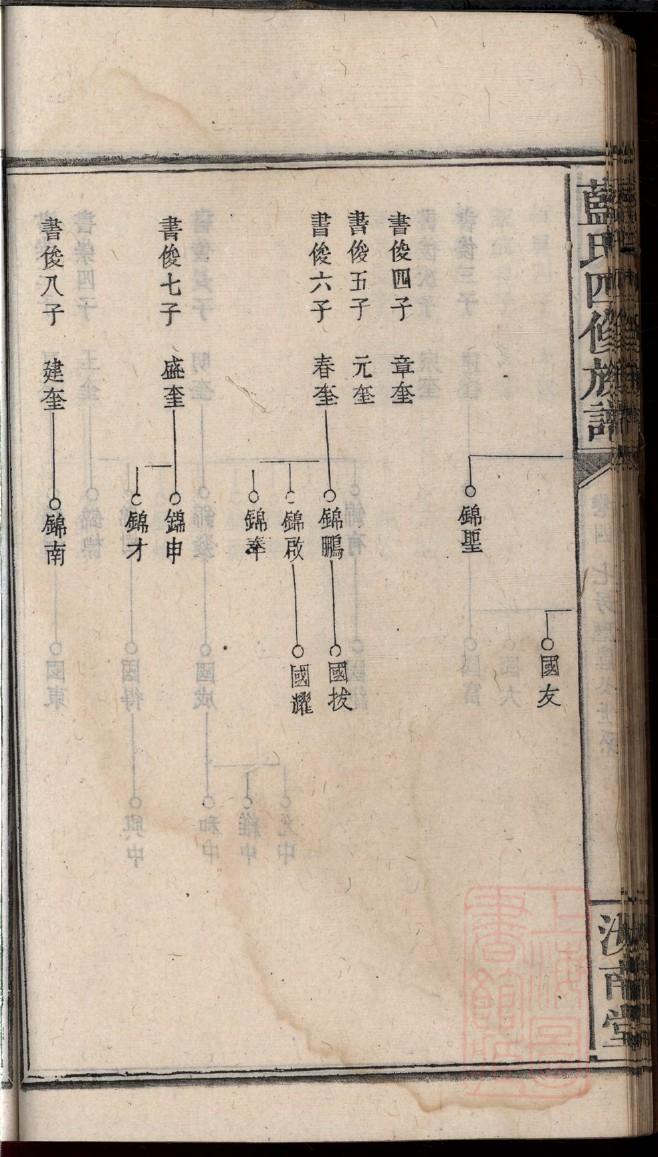 藍氏四修族譜
汝南堂
國友
錦聖
書俊四子 章奎
書俊五子 元奎
書俊六子 春奎 錦鵬 國拔
錦啟 國耀
錦奉
書俊七子 盛奎 錦申
錦才
書俊八子 建奎 錦南
上海圖書館藏